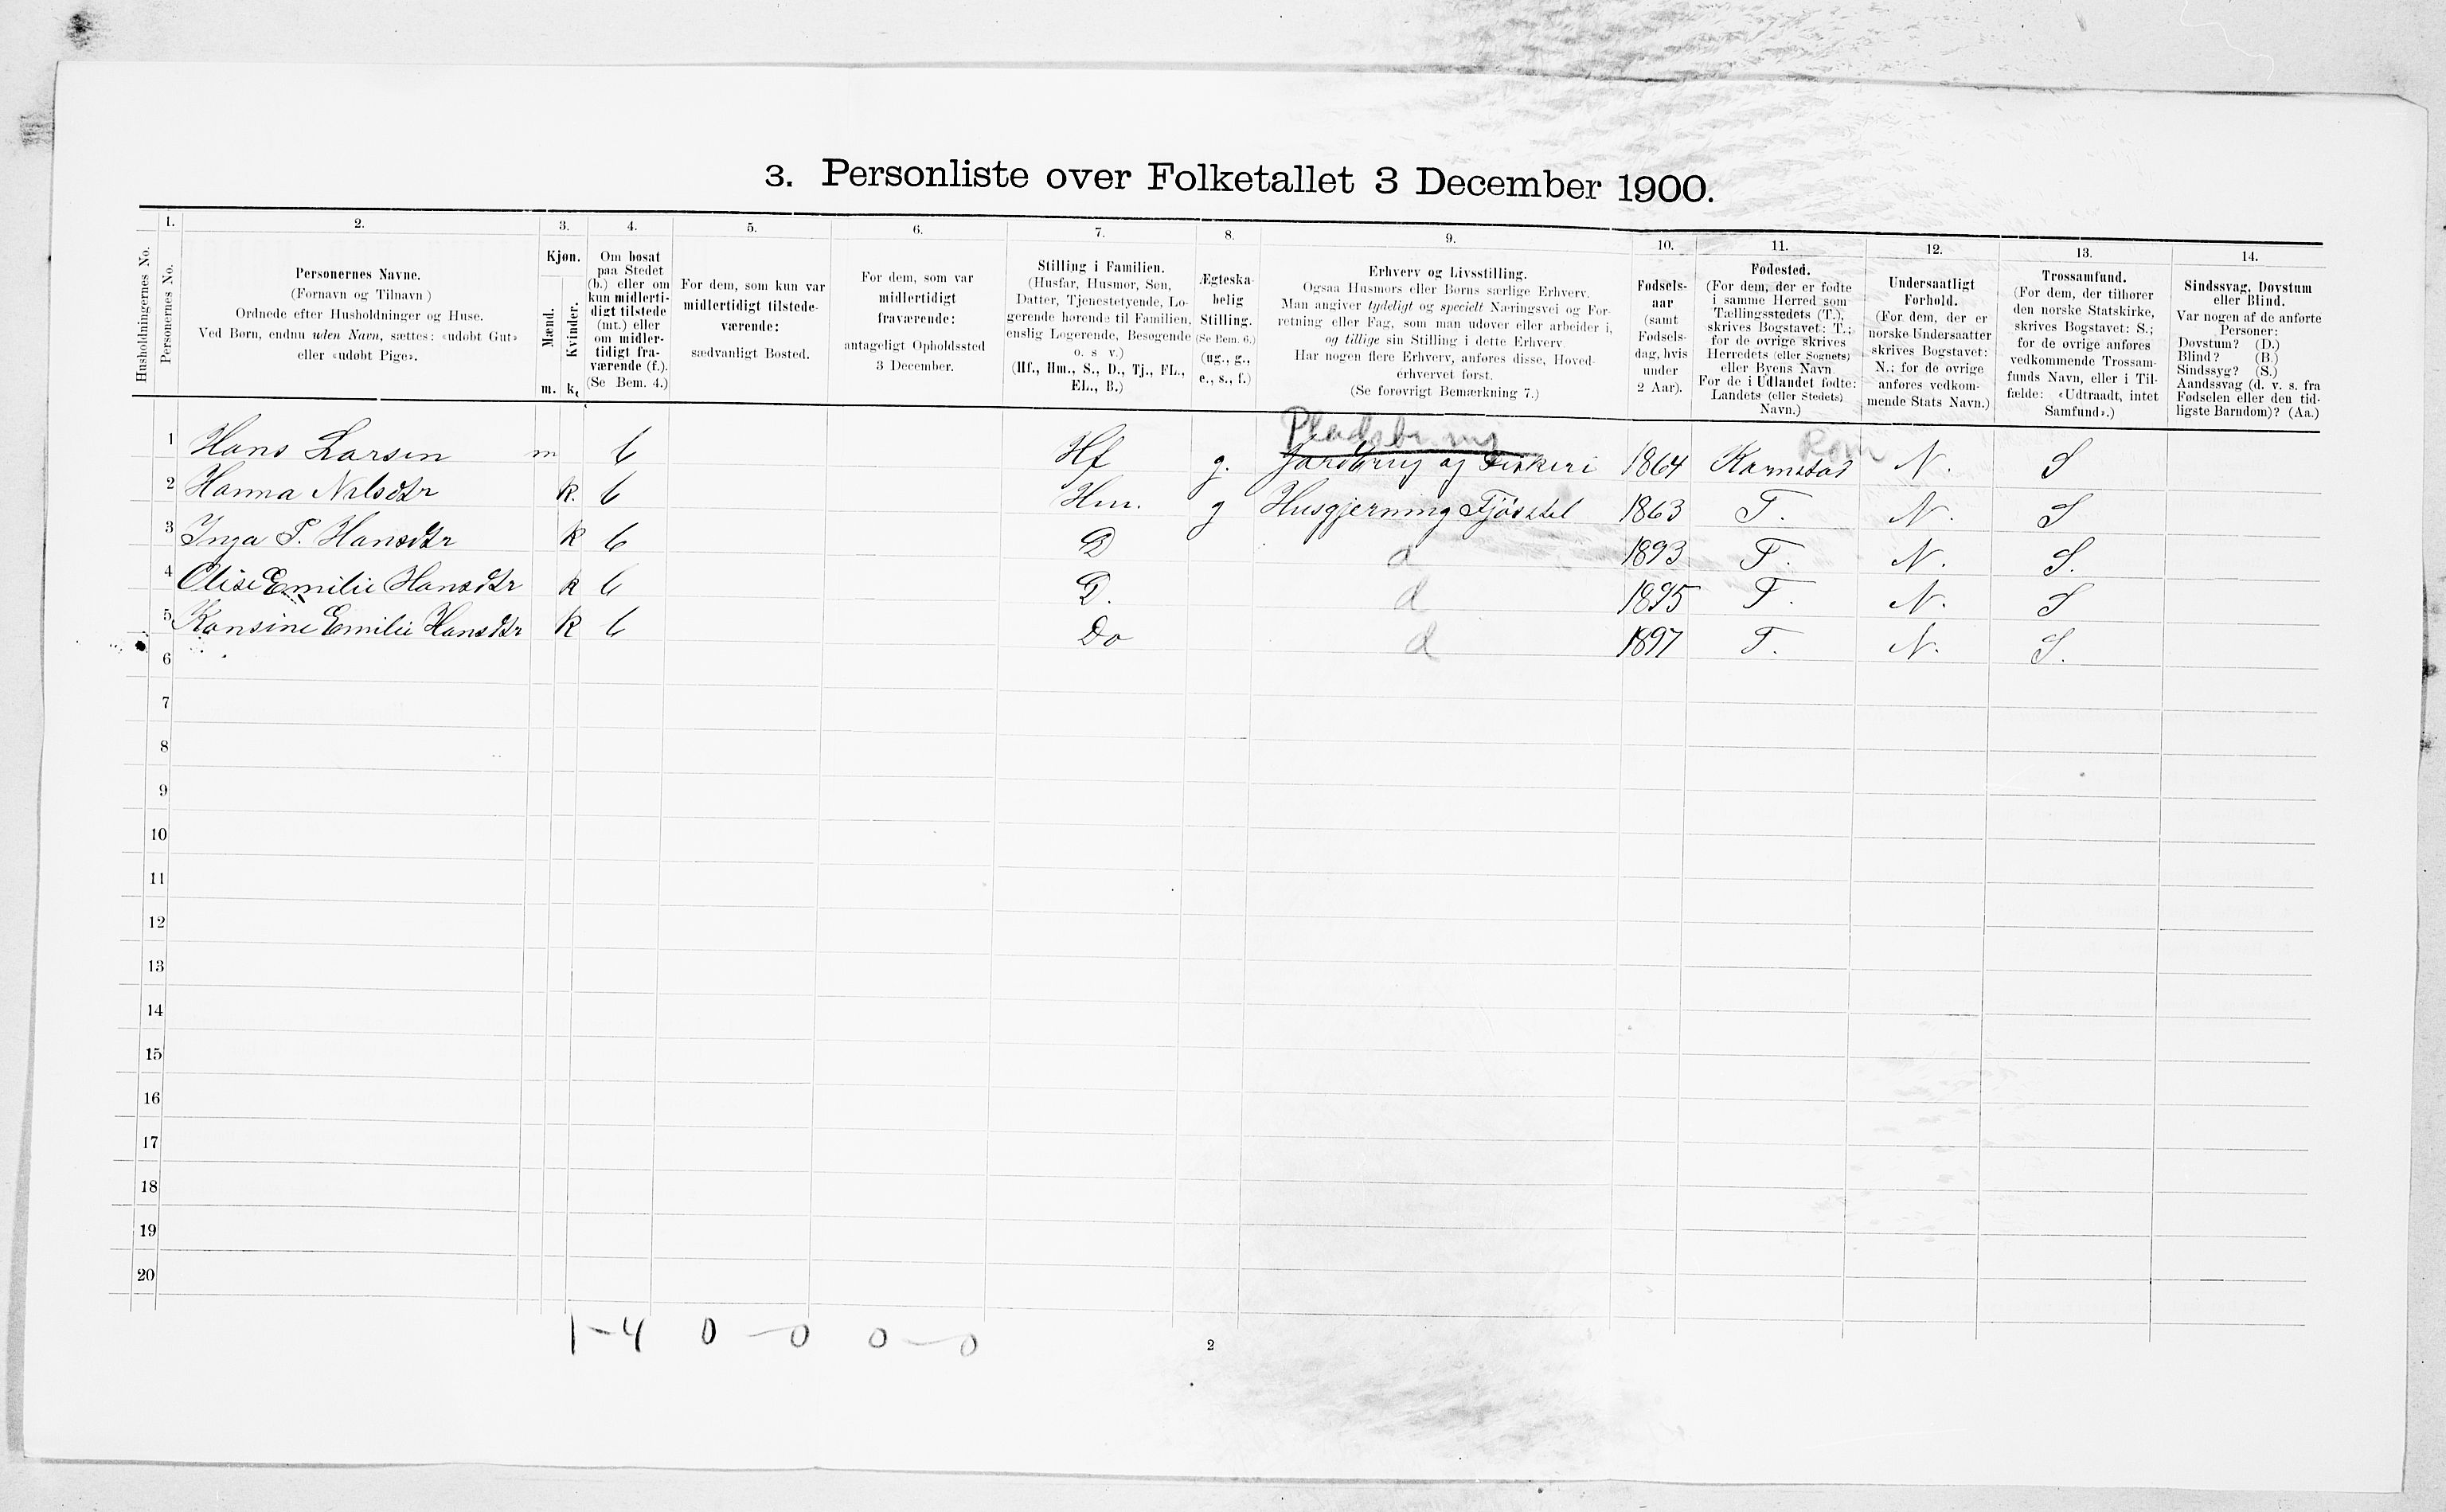 3. Personliste over Folketallet 3 December 1900.
Husholdningernes No.
1.
Personernes No.
2.
Personernes Navne.
(Fornavn og Tilnavn)
Ordnede efter Husholdninger og Huse.
Ved Børn, endnu uden Navn, sættes: «udøbt Gut»
eller «udøbt Pige».
3.
Kjøn.
Mænd.
m.
Kvinder.
k.
4.
Om bosat
paa Stedet
(b.) eller om
kun midlerti-
digt tilstede
(mt.) eller
om midler-
tidigt fra-
værende (f.).
(Se Bem. 4.)
5.
For dem, som kun var
midlertidigt tilstede-
værende:
sædvanligt Bosted.
6.
For dem, som var
midlertidigt
fraværende:
antageligt Opholdssted
3 December.
7.
Stilling i Familien.
(Husfar, Husmor, Søn,
Datter, Tjenestetyende, Lo-
gerende hørende til Familien,
enslig Logerende, Besøgende
o. s v.)
(Hf., Hm., S., D., Tj., FL.,
EL., B.)
8.
Ægteska-
belig
Stilling.
(Se Bem. 6.)
(ug., g.,
e., s., f.)
9.
Erhverv og Livsstilling.
Ogsaa Husmors eller Børns særlige Erhverv.
Man angiver tydeligt og specielt Næringsvei og For-
retning eller Fag, som man udøver eller arbeider i,
og tillige sin Stilling i dette Erhverv.
Har nogen flere Erhverv, anføres disse, Hoved-
erhvervet først.
(Se forøvrigt Bemærkning 7.)
10.
Fødsels-
aar
(samt
Fødsels-
dag, hvis
under
2 Aar).
11.
Fødested.
(For dem, der er fødte
i samme Herred som
Tællingsstedets (T.),
skrives Bogstavet: T.;
for de øvrige skrives
Herredets (eller Sognets)
eller Byens Navn.
For de i Udlandet fødte:
Landets (eller Stedets)
Navn.)
12.
Undersaatligt
Forhold.
(For dem, der er
norske Undersaatter
skrives Bogstavet:
N.; for de øvrige
anføres vedkom-
mende Stats Navn.)
13.
Trossamfund.
(For dem, der tilhører
den norske Statskirke,
skrives Bogstavet: S.;
for de øvrige anføres
vedkommende Trossam-
funds Navn, eller i Til-
fælde: «Udtraadt, intet
Samfund».)
14.
Sindssvag, Døvstum
eller Blind.
Var nogen af de anførte
Personer:
Døvstum? (D.)
Blind? (B.)
Sindssyg? (S.)
Aandssvag (d. v. s. fra
Fødselen eller den tid-
ligste Barndom)? (Aa.)
Pladsbrug
1 Hans Larsen m b Hf g. Jordbrug og Fiskeri 1864 N. S
2 Hanna Nilsdtr k. b Hm. g Husgjerning Fjøsstel 1863 T. N. S
3 Inga P. Hansdtr k b D d 1893 T. N. S.
4 Elise Emilie Hansdtr k b D. d 1895 T. N. S
5 Kansine Emilie Hansdtr k b Do d 1897 T. N. S.
6
7
8
9
10
11
12
13
14
15
16
17
18
19
20
1-4 0-0 0-0
2